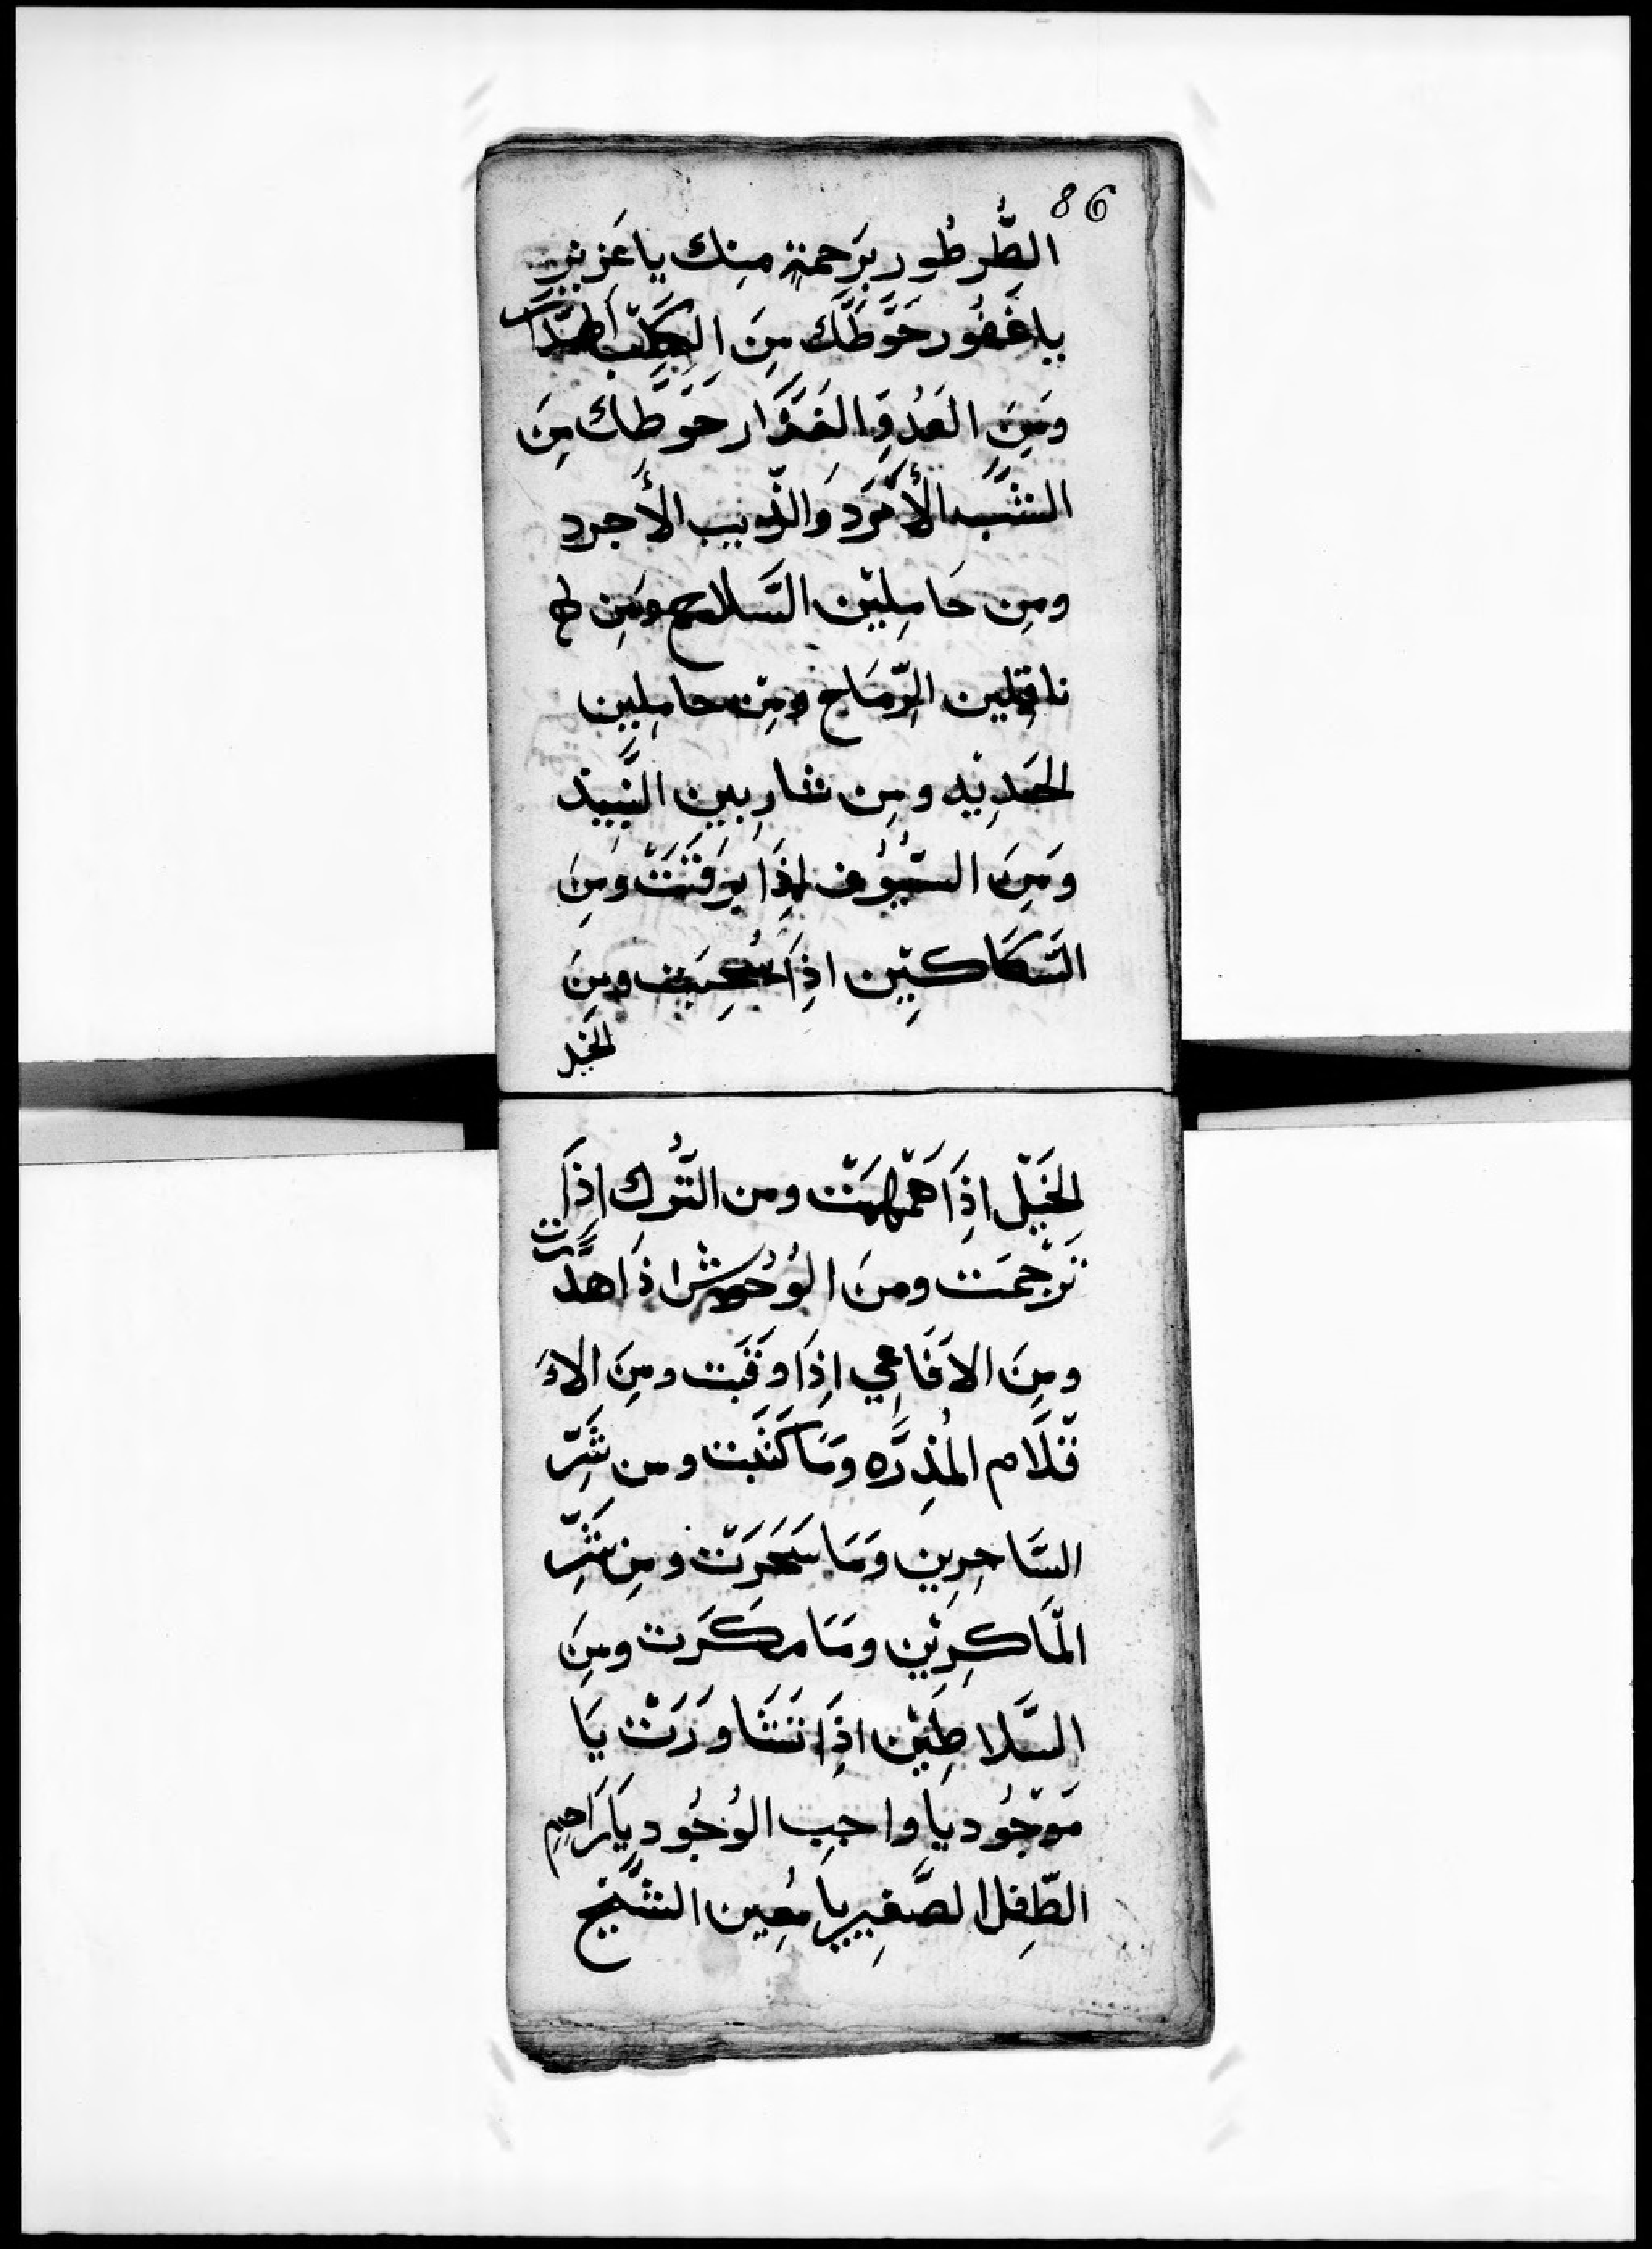 86
الطُّرطُور برَحمةٍ مِنك ياعَزيز
ياغَفُور حَوَّطَّك مِنَ الكِلَب
وَمِنَ العَدُوِّ الغَدَّار حَوَّطَّك مِنَ
الشَّب الأَمَرَد وَالذّيب الأَجرد
ومِن حَامِلِيْن السَّلاح ومَن
ناقِلين الرِّمَاح ومِنْ حامِلِين
الحَدِيْد ومِن شارِبين النَّبِيد
وَمِنَ السّيُوُف اِذَا بَرَقَتَتْ وَمِنَ
السَّكَاكِيْن اذِا سُحِبَت ومِنَ
الخيل
الخَيْل اذِا حَمْهَمَتْ ومن التُّرك اذَا
تَرْجَمَت ومنَ الوُحُوش اذَا هدَّرَت
ومِنَ الافَاعِي اذِا وقَبَت ومِنَ الاءَ
قْلَام المُذِرَّه وَمَا كَتَبَت ومن شَرِّ
السَّاحِرِين وَمَا سَحَرَتْ ومِن شَرِّ
المَّاكِرِيْن ومَا مَكَرَت ومِنَ
السَّلاطِيْن اذِا تَشَاوَرَتْ يَا
مَوْجُود يا واجِب الوُجُود يَا رَاحِم
الطِّفِل الصَّغِير يا مُعِين الشَّيْخ